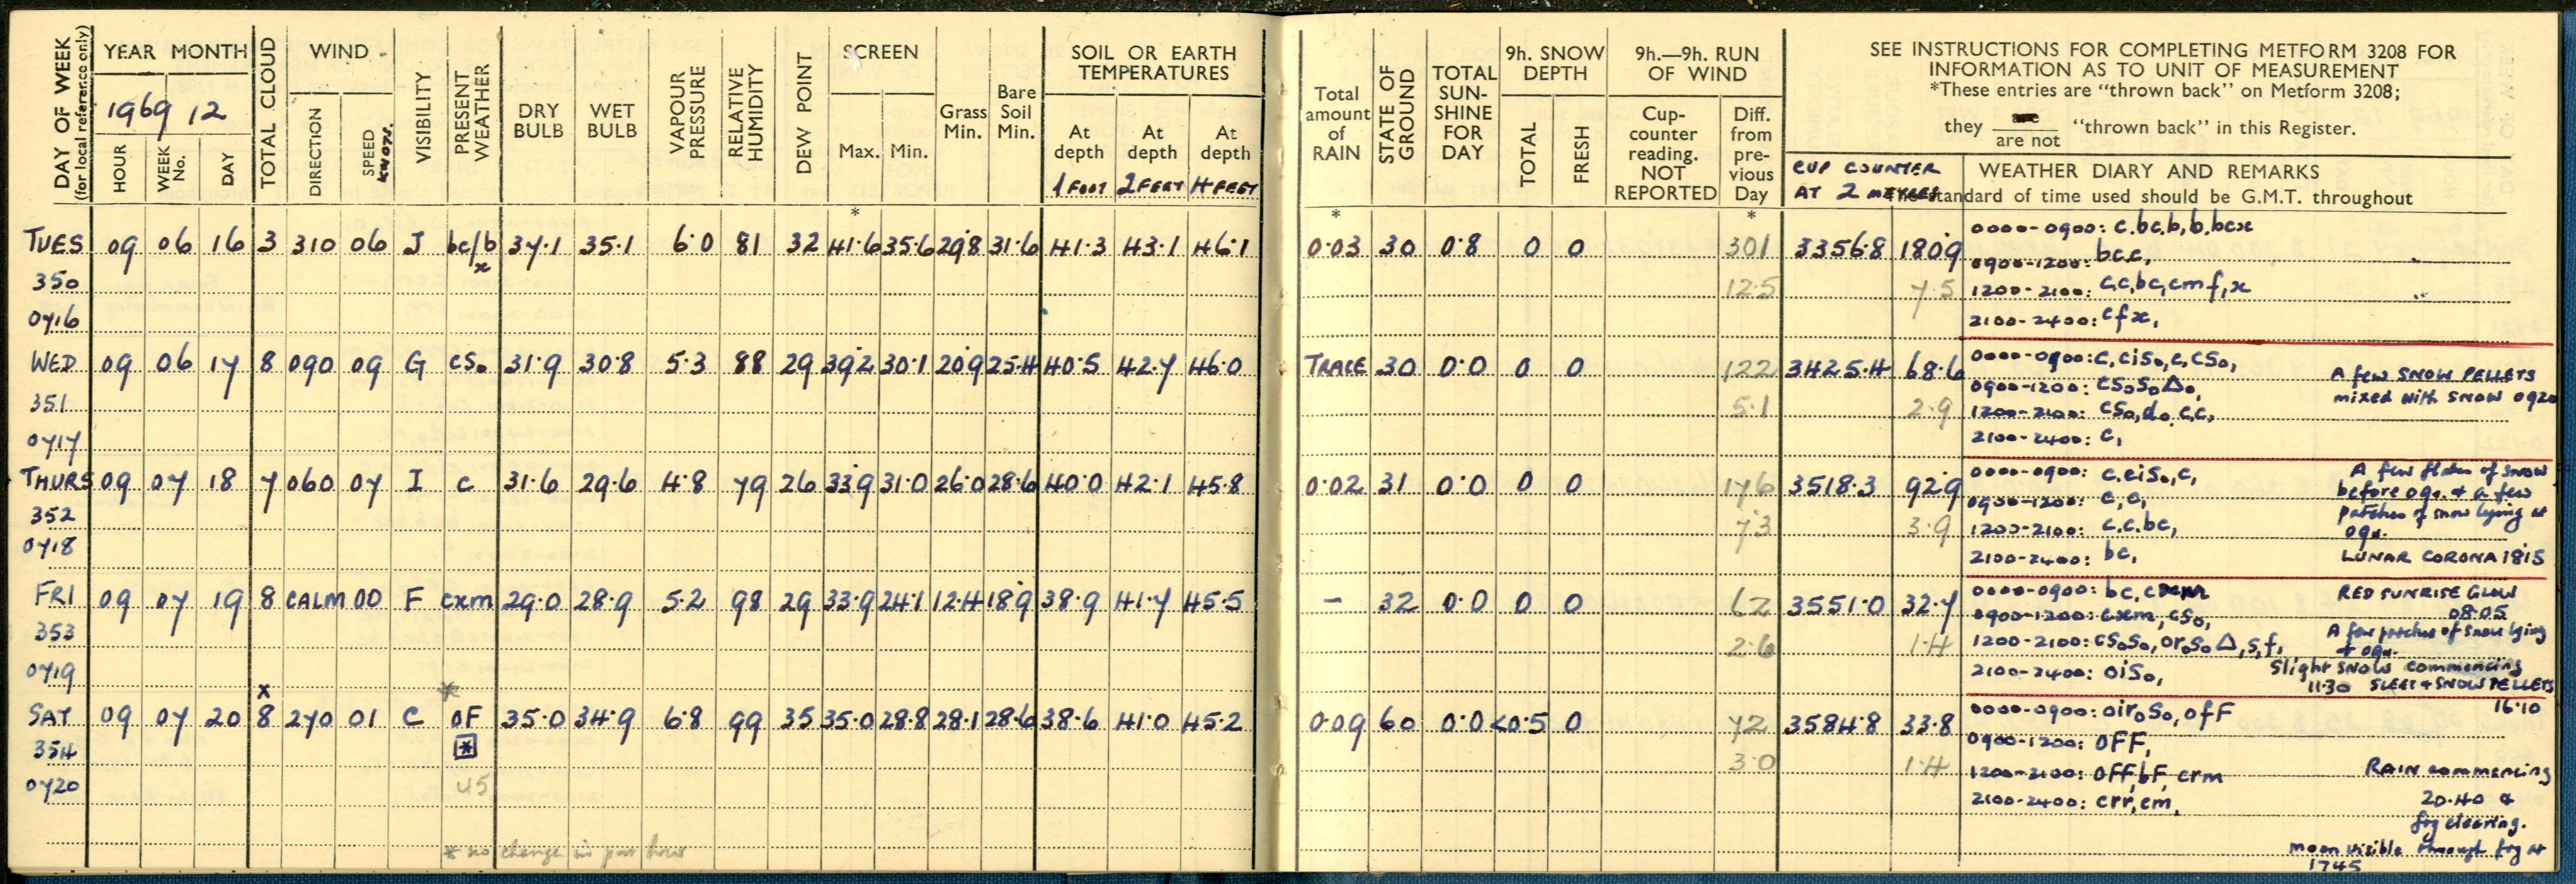 DAY OF WEEK
(for local reference only)
YEAR MONTH
1969 12
HOUR
WEEK No.
DAY
TOTAL CLOUD
WIND
DIRECTION
SPEED
KNOTS.
VISIBILITY
PRESENT WEATHER
DRY BULB
WET BULB
VAPOUR PRESSURE
RELATIVE HUMIDITY
DEW POINT
SCREEN
Max. Min.
Grass Min.
Bare Soil Min.
SOIL OR EARTH TEMPERATURES
At depth At depth At depth
1 FOOT 2 FEET 4 FEET
Total amount of RAIN
STATE OF GROUND
TOTAL SUN-SHINE FOR DAY
9h. SNOW DEPTH
TOTAL
FRESH
9h.—9h. RUN OF WIND
Cup-counter reading. NOT REPORTED
Diff. from pre-vious Day
SEE INSTRUCTIONS FOR COMPLETING METFORM 3208 FOR
INFORMATION AS TO UNIT OF MEASUREMENT
*These entries are "thrown back" on Metform 3208;
they are / are not "thrown back" in this Register.
CUP COUNTER
AT 2 METRES
WEATHER DIARY AND REMARKS
standard of time used should be G.M.T. throughout
* * *
TUES 09 06 16 3 310 06 J bc/b x 37.1 35.1 6.0 81 32 41.6 35.6 29.8 31.6 41.3 43.1 46.1 0.03 30 0.8 0 0 301 3356.8 180.9
0000-0900: c.bc,b,b.bcx
0900-1200: bc.c,
350 12.5 7.5
1200-2100: c,c,bc,cmf,x
0716
2100-2400: cfx,
WED 09 06 17 8 090 09 G cs₀ 31.9 30.8 5.3 88 29 39.2 30.1 20.9 25.4 40.5 42.7 46.0 TRACE 30 0.0 0 0 122 3425.4 68.6
0000-0900: c,cis₀,c,cs₀,
A few SNOW PELLETS
mixed with SNOW 0920
0900-1200: cs₀s₀△₀,
351 5.1 2.9
1200-2100: cs₀,d₀.c,c,
0717
2100-2400: c,
THURS 09 07 18 7 060 07 I c 31.6 29.6 4.8 79 26 33.9 31.0 26.0 28.6 40.0 42.1 45.8 0.02 31 0.0 0 0 176 3518.3 92.9
0000-0900: c.cis₀,c,
A few flakes of snow
before 09h. & a few
patches of snow lying at
09h.
0900-1200: c,c,
352 7.3 3.9
1200-2100: c.c.bc,
0718
2100-2400: bc,
LUNAR CORONA 1815
FRI 09 07 19 8 CALM 00 F cxm 29.0 28.9 5.2 98 29 33.9 24.1 12.4 18.9 38.9 41.7 45.5 - 32 0.0 0 0 62 3551.0 32.7
0000-0900: bc,cxm
RED SUNRISE GLOW
08.05
0900-1200: cxm,cs₀,
353 2.6 1.4
A few patches of snow lying
09h.
1200-2100: cs₀s₀,or₀s₀△,s,f,
0719
Slight SNOW commencing
11.30 SLEET & SNOW PELLETS
16.10
2100-2400: ois₀,
x *
SAT 09 07 20 8 270 01 C oF 35.0 34.9 6.8 99 35 35.0 28.8 28.1 28.6 38.6 41.0 45.2 0.09 60 0.0 <0.5 0 72 3584.8 33.8
0000-0900: oir₀s₀,ofF
0900-1200: OFF,
354 * 3.0 1.4
1200-2100: OFF,bF,crm
RAIN commencing
20.40 &
fog clearing.
0720 45
2100-2400: crr,cm,
* no change in past hour
moon visible through fog at
1745